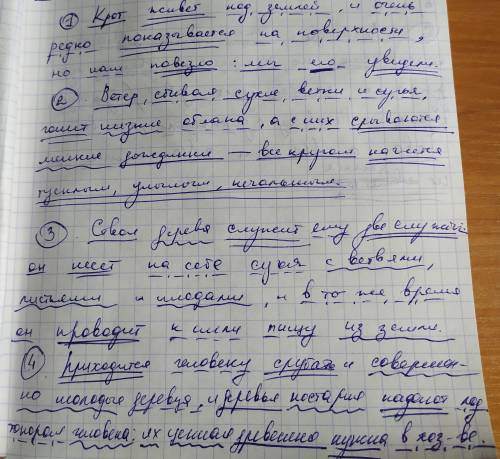 ① Крот живёт под землёй, и очень
редко показывается на поверхности,
но нам повезло: мы его увидели.
② Ветер, сбивая сухие ветки и сучья,
гонит низкие облака, а с них срываются
мелкие дождинки — все кругом кажется
тусклым, унылым, печальным.
③ Ствол дерева служит ему две службы:
он несёт на себе сучья с ветвями,
листьями и плодами, и в то же время
он проводит к ним пищу из земли.
④ Приходится человеку срубать и совершен-
но молодые деревья, и деревья постарше падают под
топором человека: их ценная древесина нужна в хоз-ве.